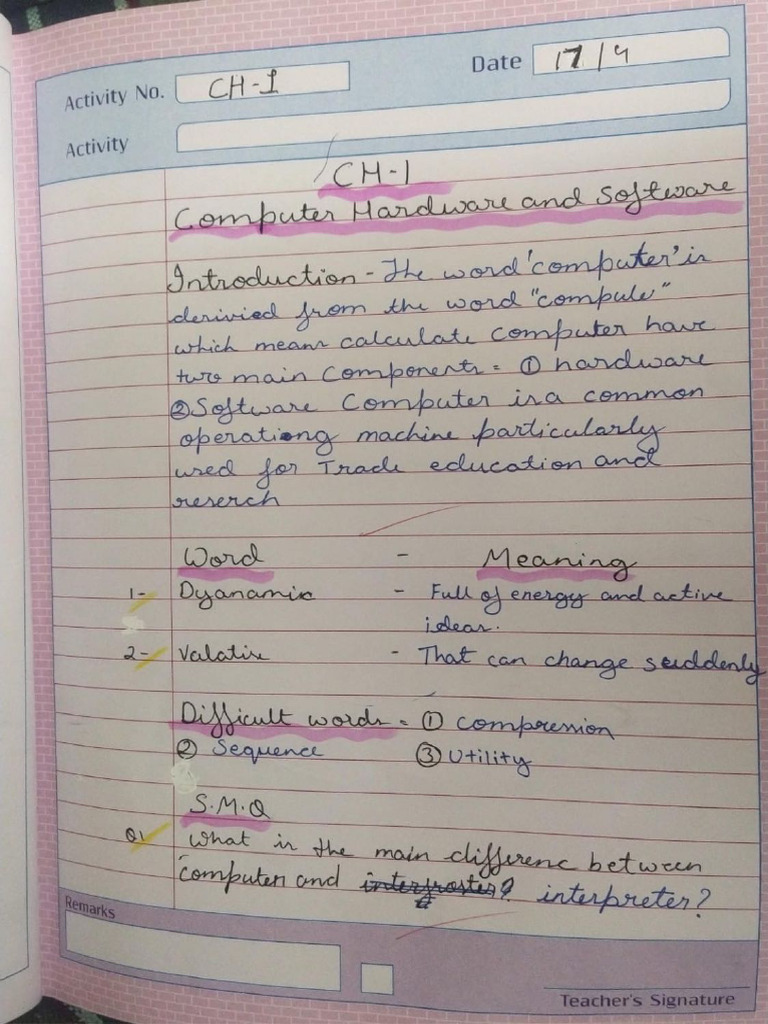 Activity No. CH-1
Date 17/4
Activity
CH-1
Computer Hardware and Software
Introduction - The word 'computer' is
derivied from the word "compute"
which means calculate computer have
two main components = ① hardware
② Software Computer is a common
operationg machine particularly
used for Trade education and
reserch
Word - Meaning
1- Dyanamic - Full of energy and active
ideas.
2- Valatile - That can change suddenly
Difficult words = ① compression
② Sequence ③ Utility
S.M.Q
Q1 What is the main differenc between
computer and interpreter?
Remarks
Teacher's Signature